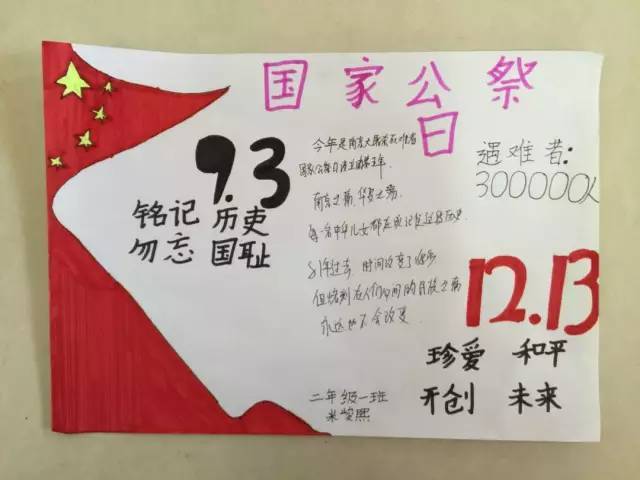 国家公祭
日
9.3
铭记 历史
勿忘 国耻
今年是南京大屠杀死难者
国家公祭日设立的第五年.
南京之痛,华夏之痛.
每一名中华儿女都应永记住这段历史
81年过去,时间改变了很多
但烙刻在人们心间的民族之痛
永远也不会改变.
遇难者:
300000人
12.13
珍爱 和平
开创 未来
二年级一班
米黎熙